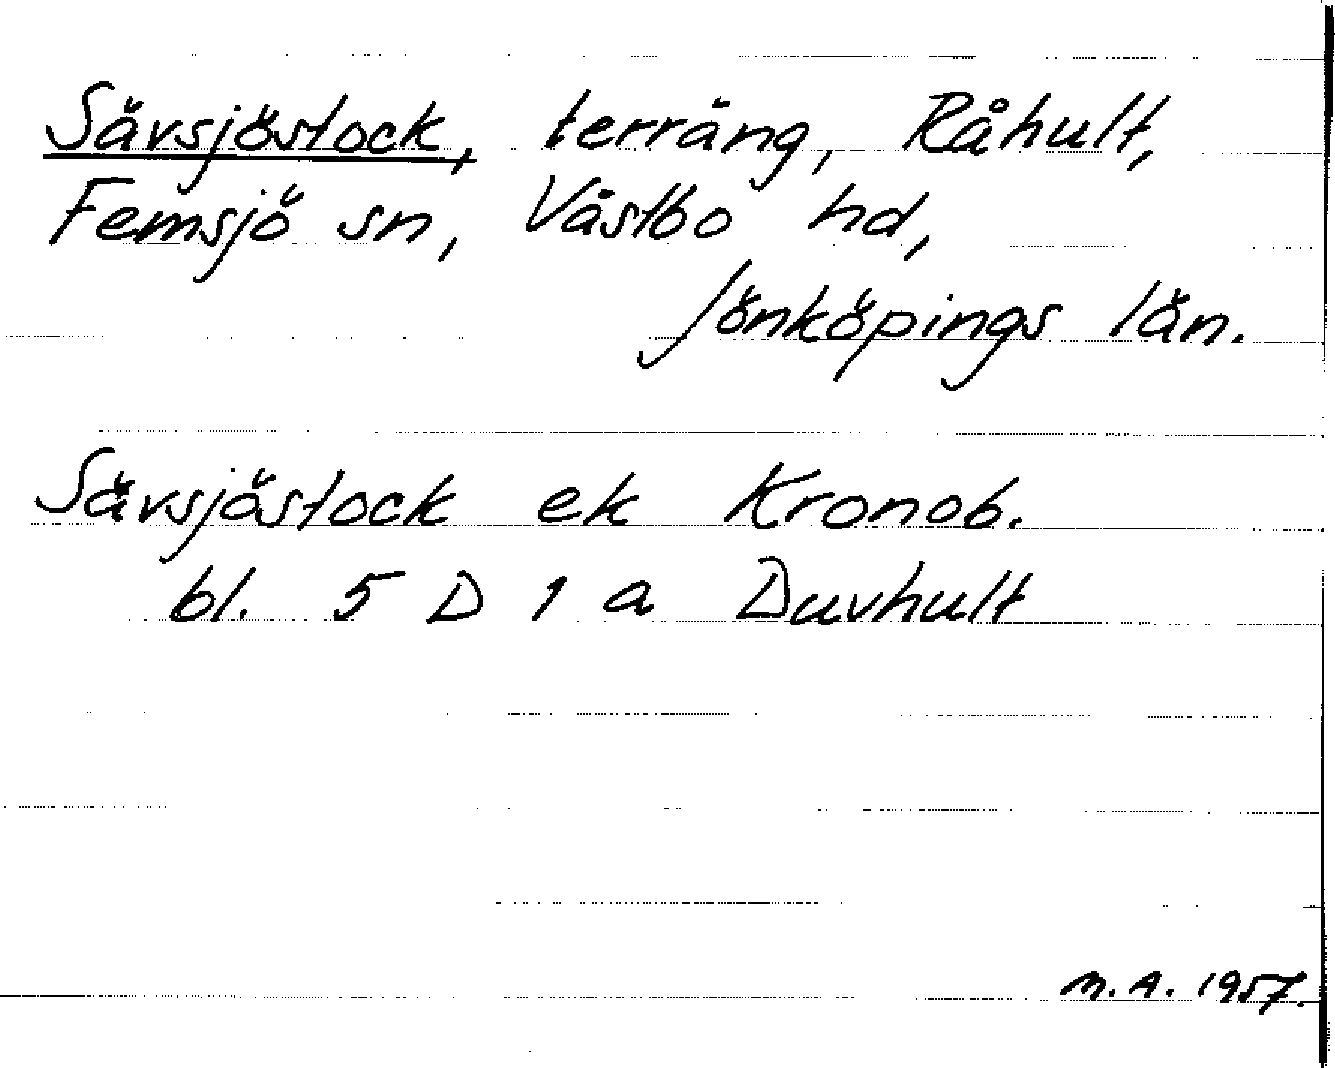 Sävsjöstock, terräng, Råhult,
Femsjö sn, Västbo hd,
Jönköpings län.
Sävsjöstock ek Kronob.
bl. 5 D 1 a Duvhult
M.A. 1957.